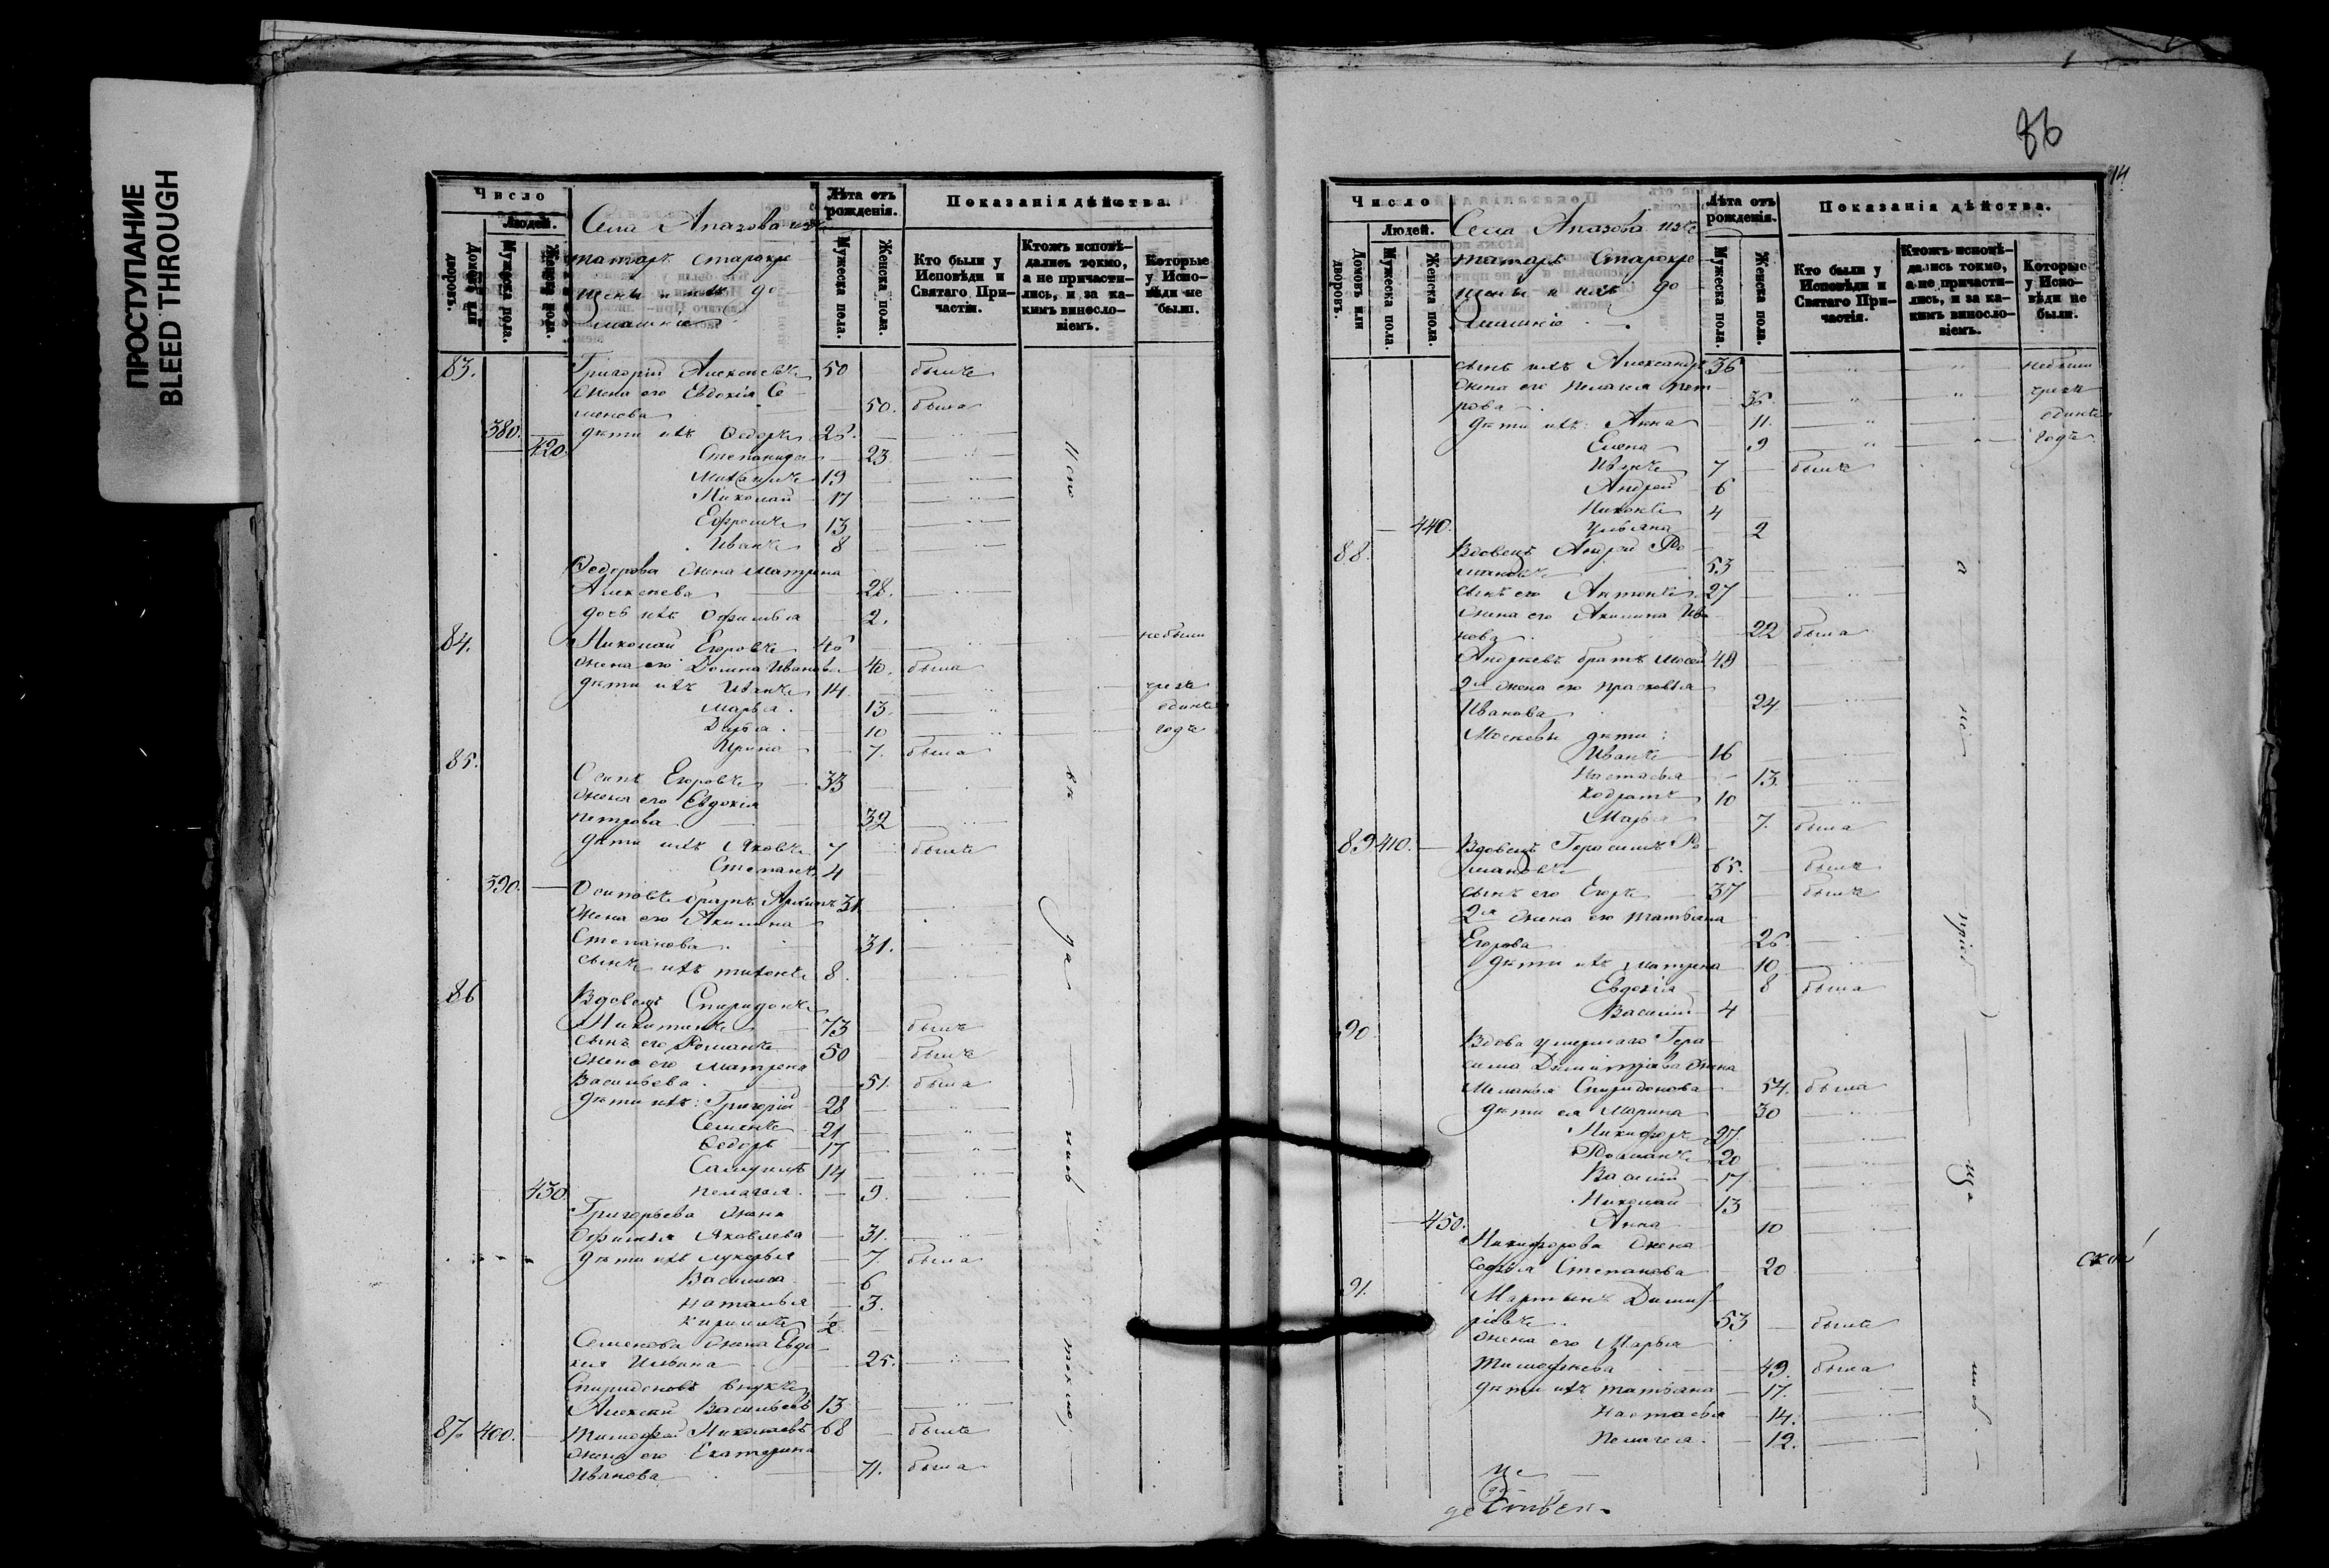 ПРОСТУПАНИЕ
BLEED THROUGH
Число
Людей.
Домовъ или дворовъ.
Мужеска пола.
Женска пола.
Села Апазова изъ
татаръ старокре
щены и ихъ до
машніе
Лѣта отъ рожденія.
Мужеска пола.
Женска пола.
Показанія дѣйства.
Кто были у Исповѣди и Святаго При-
частія.
Ктожъ исповѣ-
дались токмо,
а не причасти-
лись, и за ка-
кимъ виносло-
віемъ.
Которые
у Испо-
вѣди не
были.
83. Григорій Алексеевъ 50 былъ
Жена его Евдокія Се
менова 50. была
380. дѣти ихъ Ѳедоръ 25.
420. Степанида 23
Михаилъ 19
Николай 17
Ефремъ 13
Иванъ 8
Ѳедорова жена Матрена
Алексеева 28.
дочь ихъ Офимья 2.
84. Николай Егоровъ 40 небыли
жена его Домна Иванова 40. была
дѣти ихъ Иванъ 14 чрезъ
Марья 13. одинъ
Дарья 10 годъ
Ирина 7. была
85. Осипъ Егоровъ 33
жена его Евдокія
Петрова 32
дѣти ихъ Яковъ 7 былъ
Степанъ 4
390. Осиповъ братъ Архипъ 31
жена его Акилина
Степанова 31.
сынъ ихъ Тихонъ 8.
86 Вдовецъ Спиридонъ
Никитинъ 73 былъ
сынъ его Романъ 50 былъ
жена его Матрена
Васильева 51. была
дѣти ихъ: Григорій 28
Семенъ 21
Ѳедоръ 17
Самуилъ 14
430. Пелагея 9.
Григорьева жена
Офимья Яковлева 31.
дѣти ихъ Лукерья 7. была
Василиса 6
Наталья 3.
Кирилъ 1/2
Семенова жена Евдо
кия Ильина 25.
Спиридоновъ внукъ
Алексей Васильевъ 13
87 400. Тимофей Николаевъ 68 былъ
жена его Екатерина
Иванова 71. была
86
Число
Людей.
Домовъ или дворовъ.
Мужеска пола.
Женска пола.
Села Апазова изъ
татаръ Старокре
щены и ихъ до
машніе
Лѣта отъ рожденія.
Мужеска пола.
Женска пола.
Показанія дѣйства.
Кто были у
Исповѣди и
Святаго При-
частія.
Ктожъ исповѣ-
дались токмо,
а не причасти-
лись, и за ка-
кимъ виносло-
віемъ.
Которые
у Испо-
вѣди не
были.
сынъ ихъ Александръ 36 небыли
жена его Пелагея Пет чрезъ
рова 35. одинъ
дѣти ихъ: Анна 11. годъ
Елена 9
Иванъ 7 былъ
Андрей 6
Никонъ 4
440. Ульяна 2
88. Вдовецъ Андрей Ро
мановъ 53
сынъ его Антонъ 27
жена его Акилина Ива
нова 22 была
Андреевъ братъ Мосей 49
2я жена его Прасковья
Иванова 24
Мосеевы дѣти:
Иванъ 16
Настасья 13.
Кодратъ 10
Марья 7. была
89 410. Вдовецъ Герасимъ Ро
мановъ 65. былъ
сынъ его Егоръ 37 былъ
2я жена его Татьяна
Егорова 26
дѣти ихъ Матрена 10
Евдокія 8 была
Василій 4
90. Вдова умершаго Гера
сима Димитріева жена
Меланья Спиридонова 54. была
дѣти ея Марина 30
Никифоръ 27.
Романъ 20
Василій 17
Николай 13
450. Анна 10
Никифорова жена
Софья Степанова 20
91. Мартынъ Димит
ріевъ 53 былъ
жена его Марья
Тимофеева 49. была
дѣти ихъ Татьяна 17.
Настасья 14.
Пелагея 12.